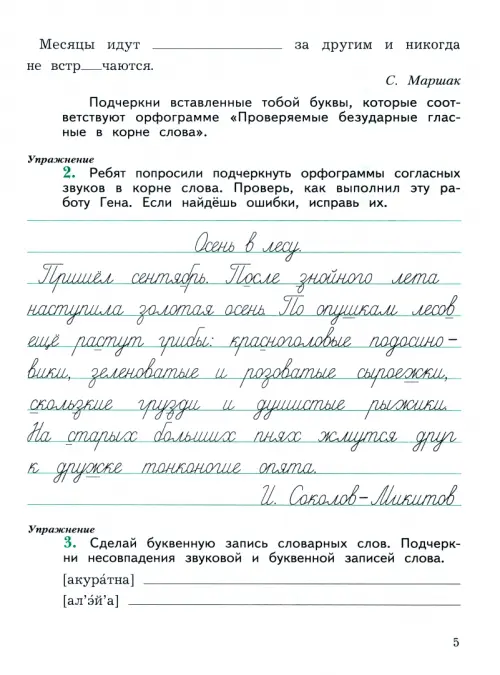 Месяцы идут ____________ за другим и никогда
не встр__чаются.
С. Маршак
Подчеркни вставленные тобой буквы, которые соот-
ветствуют орфограмме «Проверяемые безударные глас-
ные в корне слова».
Упражнение
2. Ребят попросили подчеркнуть орфограммы согласных
звуков в корне слова. Проверь, как выполнил эту ра-
боту Гена. Если найдёшь ошибки, исправь их.
Осень в лесу.
Пришёл сентябрь. После знойного лета
наступила золотая осень. По опушкам лесов
ещё растут грибы: красноголовые подосино-
вики, зеленоватые и розоватые сыроежки,
скользкие грузди и душистые рыжики.
На старых больших пнях жмутся друг
к дружке тонконогие опята.
И. Соколов-Микитов
Упражнение
3. Сделай буквенную запись словарных слов. Подчерк-
ни несовпадения звуковой и буквенной записей слова.
[акура́тна] ____________
[ал'э́й'а] ____________
5